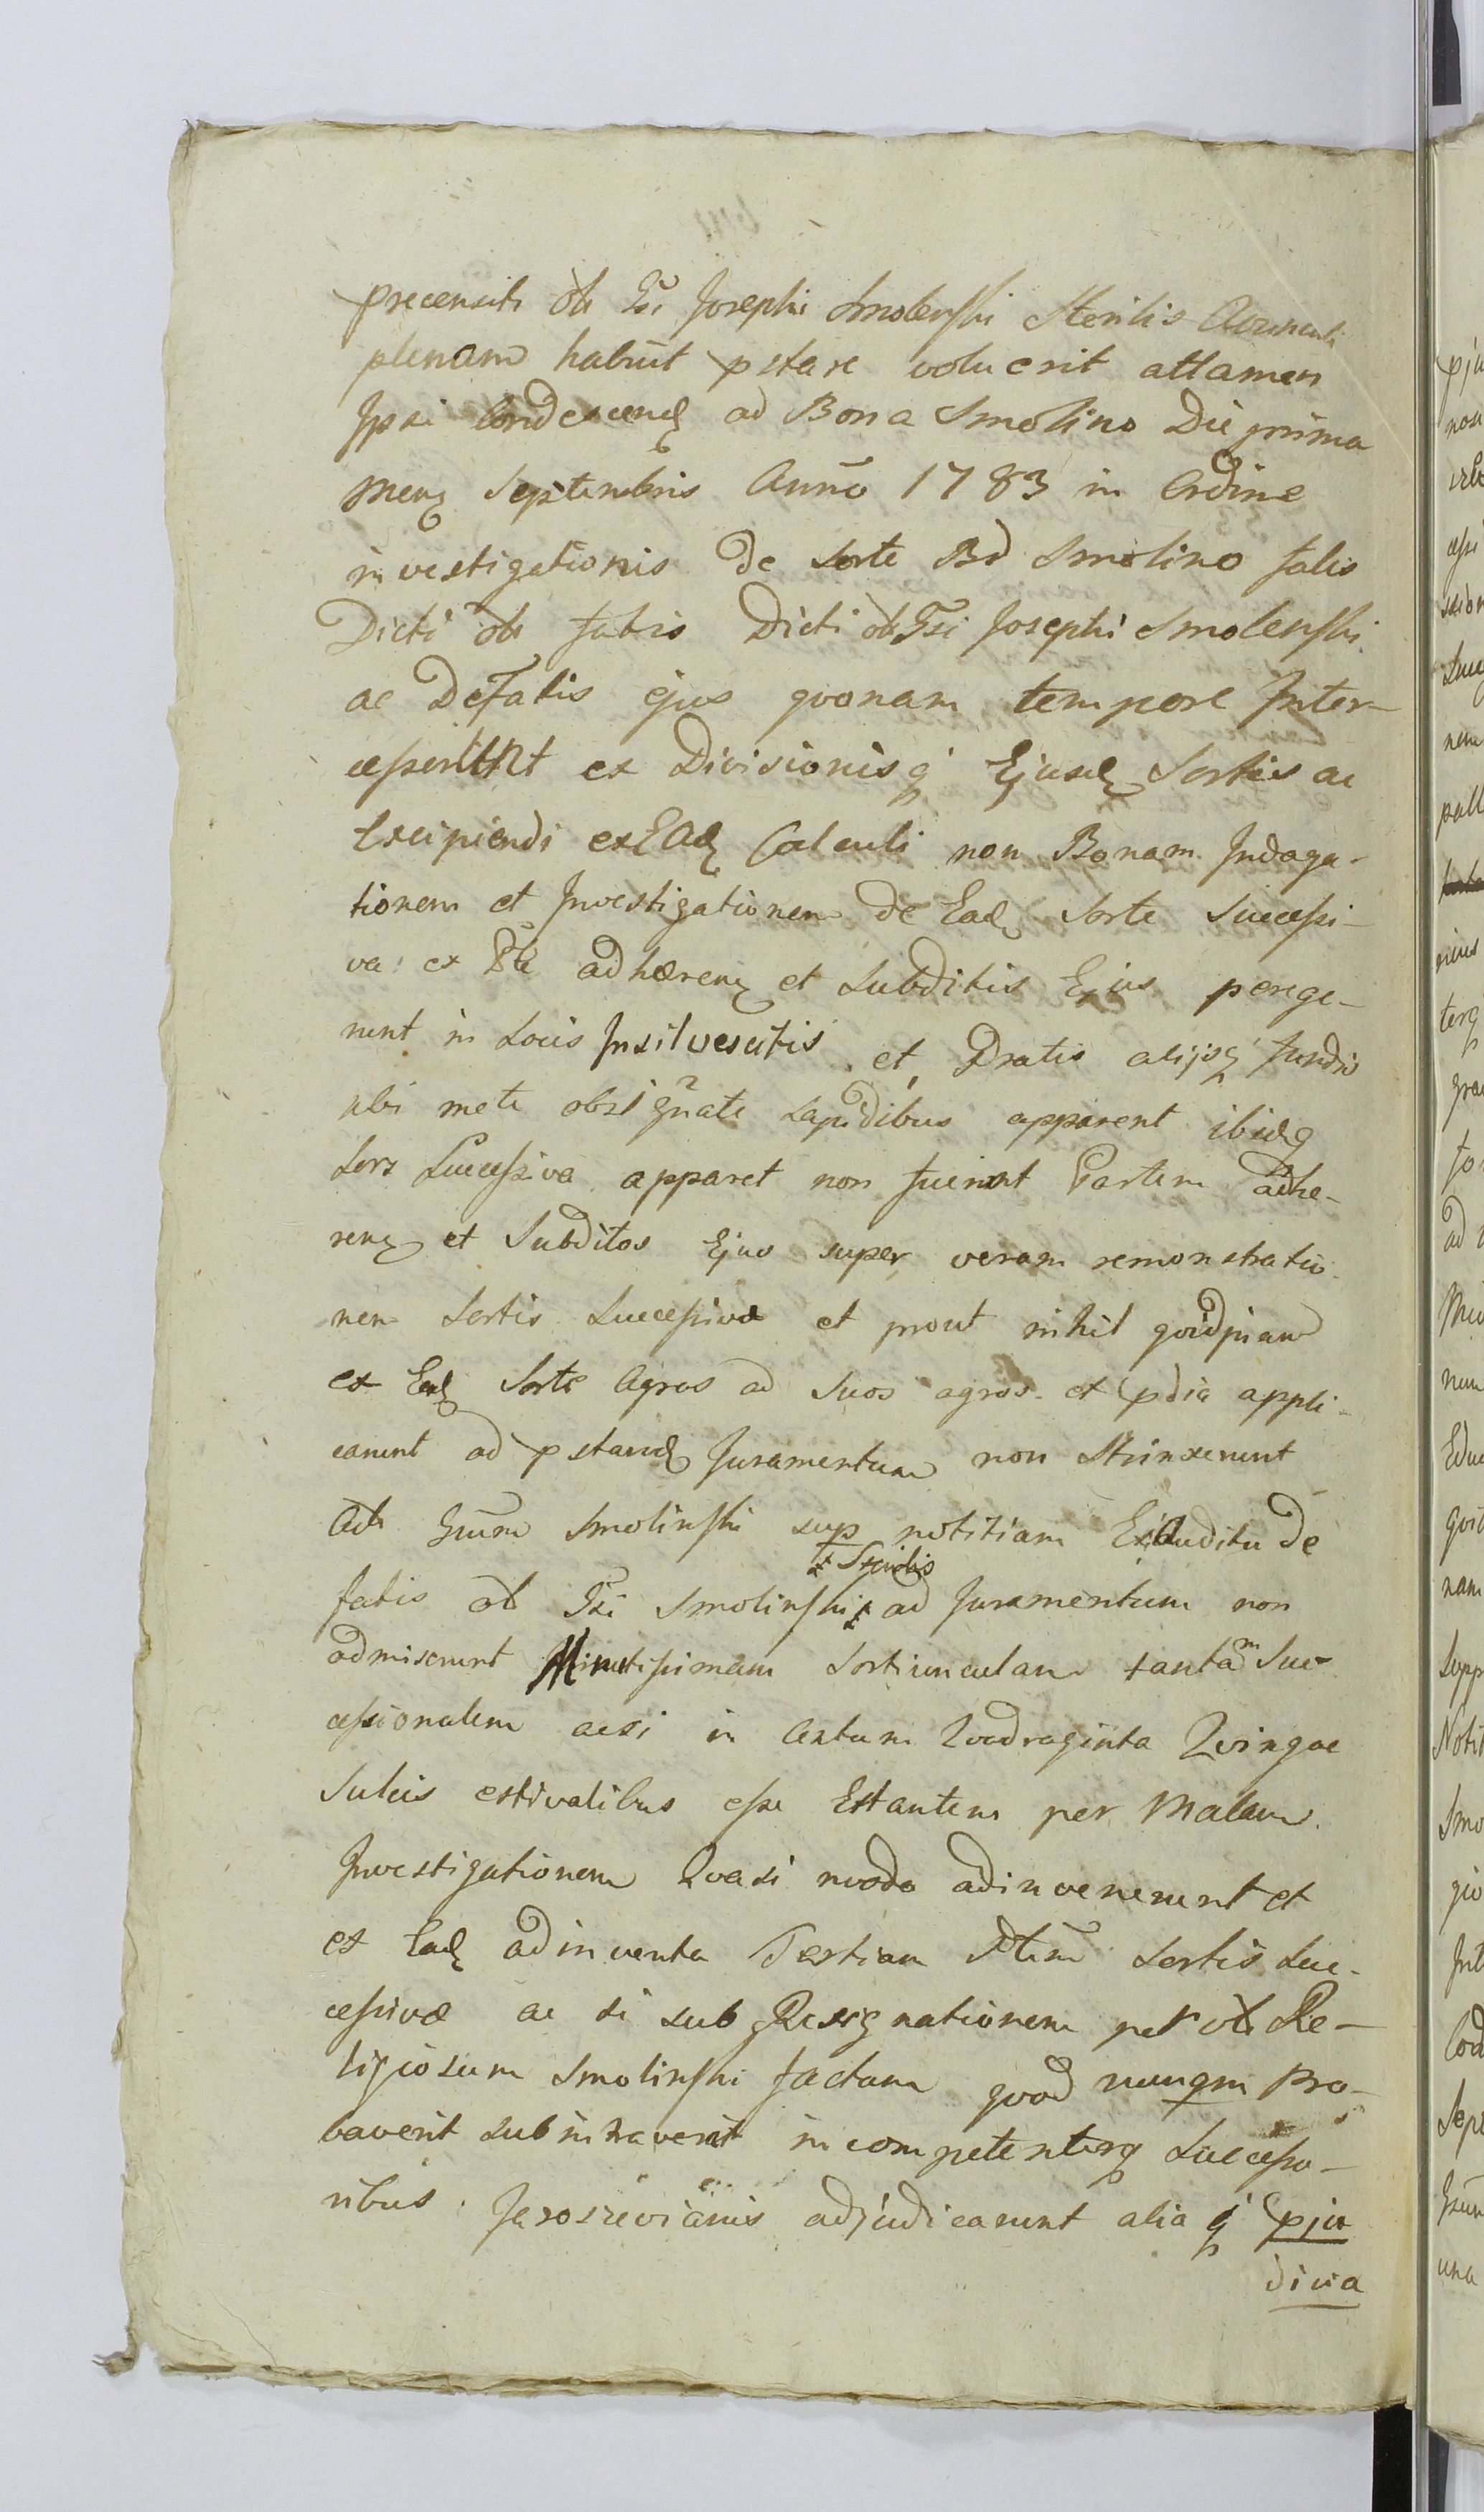 precensiti olr Gsi Josephi Smolenski Sterilis Avunculi
plenam habuit pstare voluerit attamen
Ipsi Condescenđ ad Bona Smolino Die prima
Menq Septembris Anno 1783 in Ordine
investigationis de Sorte Bd Smolino talis
Dicti olr fatis Dicti olr Gsi Josephi Smolenski
ac De Fatis ejus qvonam tempore Inter-
cesserunt ex Divisionisq Ejusđ Sortis ac
Excipiendi ex Eađ Calculi non Bonam Indaga-
tionem et Investigationem de Eađ Sorte Successi-
va ex Pte adhærenq et Subditis Ejus perege-
runt in Locis Insilvescitis et Pratis alijsq fundis
ubi mete obsignate Lapidibus apparent ibiđq
Sors Successiva apparet non fuerunt Partem adhe-
renq et Subditos Ejus super veram remonstratio-
nem Sortis Successivæ et prout nihil qvidpiam
ex Eađ Sorte Agros ad Suos agros et pdia appli-
carunt ad pstanđ Juramentum non Strinxerunt
Smolinski sup notitiam Exauditu de
+ Sterilis
fatis ol Gsi Smolinski + ad Juramentum non
admiserunt Minutissimam Sortiunculam tantam Suc-
cessionalem acsi in Centum Qvadraginta Qvinque
Sulcis estivalibus esse Extantem per Malam
Investigationem Qvasi modo adinvenerunt et
ex Eađ adinventa Tertiam Ptem Sortis Suc-
cessivæ ac si sub Resignationem per olr Re-
ligiosum Smolinski factam qvod nunqm Pro-
baverit subintraverit incompetenterq Successo-
ribus Jarosievianis adjudicarunt aliaq pju
diua